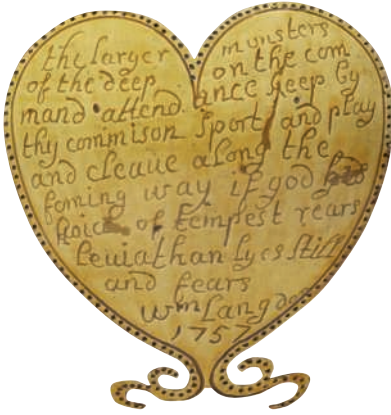 the larger monsters
of the deep on the com
mand attend ance keep by
thy commison sport and play
and cleave along the
foming way if god
voice of tempest rears
leviathan lyes still
and fears
Wm Langdon
1757